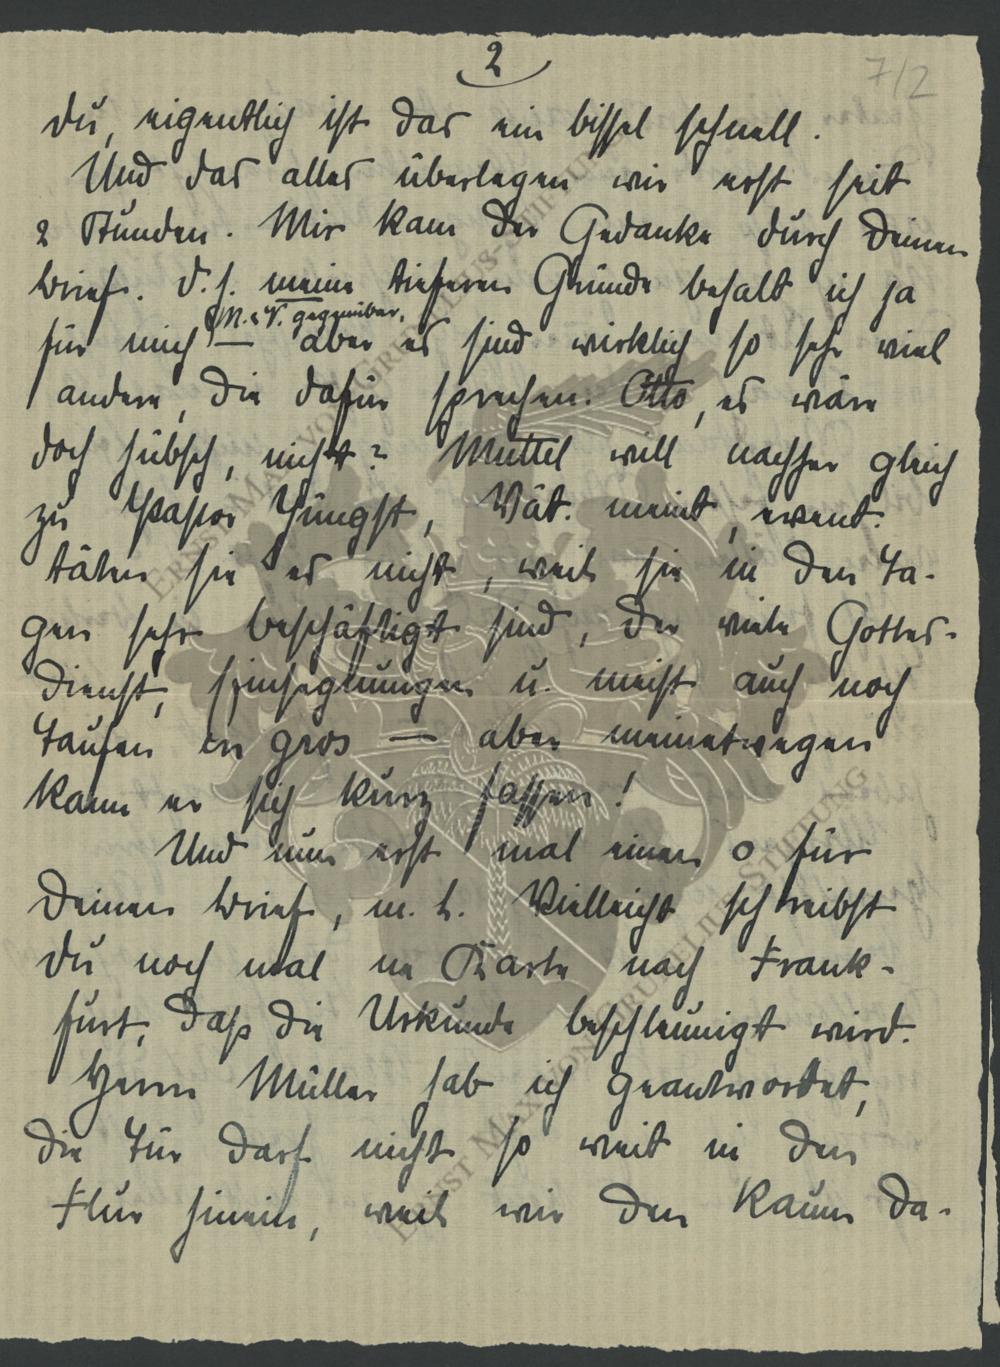 2
7/2
Du, eigentlich ist das ein bissel schnell.
Und das alles überlegen wir erst seit
2 Stunden. Mir kam der Gedanke durch Deinen
Brief. D. h. meine tieferen Gründe behalt ich ja
M. u. V. gegenüber,
für mich — aber es sind wirklich so sehr viel
andere, die dafür sprechen. Otto, es wäre
doch hübsch, nicht? Muttel will nachher gleich
zu Pastor Jüngst, Vät. meint, event.
täten sie es nicht, weil sie in den Ta-
gen sehr beschäftigt sind, der viele Gottes-
dienst, Einsegnungen u. meist auch noch
Taufen en gros — aber meinetwegen
kann er sich kurz fassen!
Und nun erst mal einen o für
Deinen Brief, m. L. Vielleicht schreibst
Du noch mal ne Karte nach Frank-
furt, daß die Urkunde beschleunigt wird.
Herrn Müller hab ich geantwortet,
die Tür darf nicht so weit in den
Flur hinein, weil wir den Raum da-
ERNST MAX VON GRUNELIUS-STIFTUNG
ERNST MAX VON GRUNELIUS-STIFTUNG